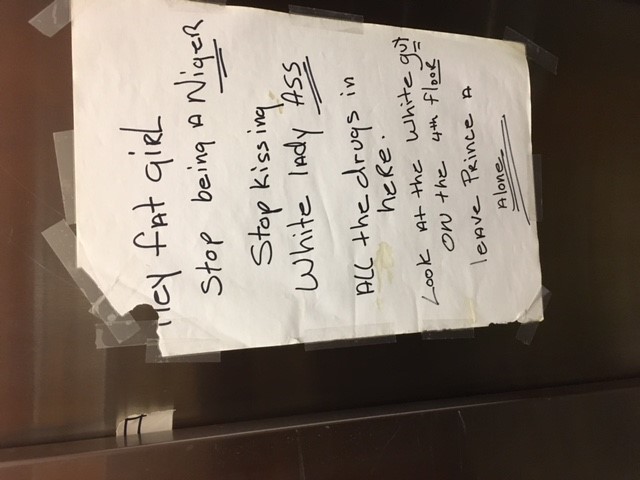 Hey fAt giRL
Stop being A NigeR
Stop kissing
White lAdy ASS
ALL the drugs in
heRe.
Look At the white guy
on the 4th flooR
leAve Prince A
Alone